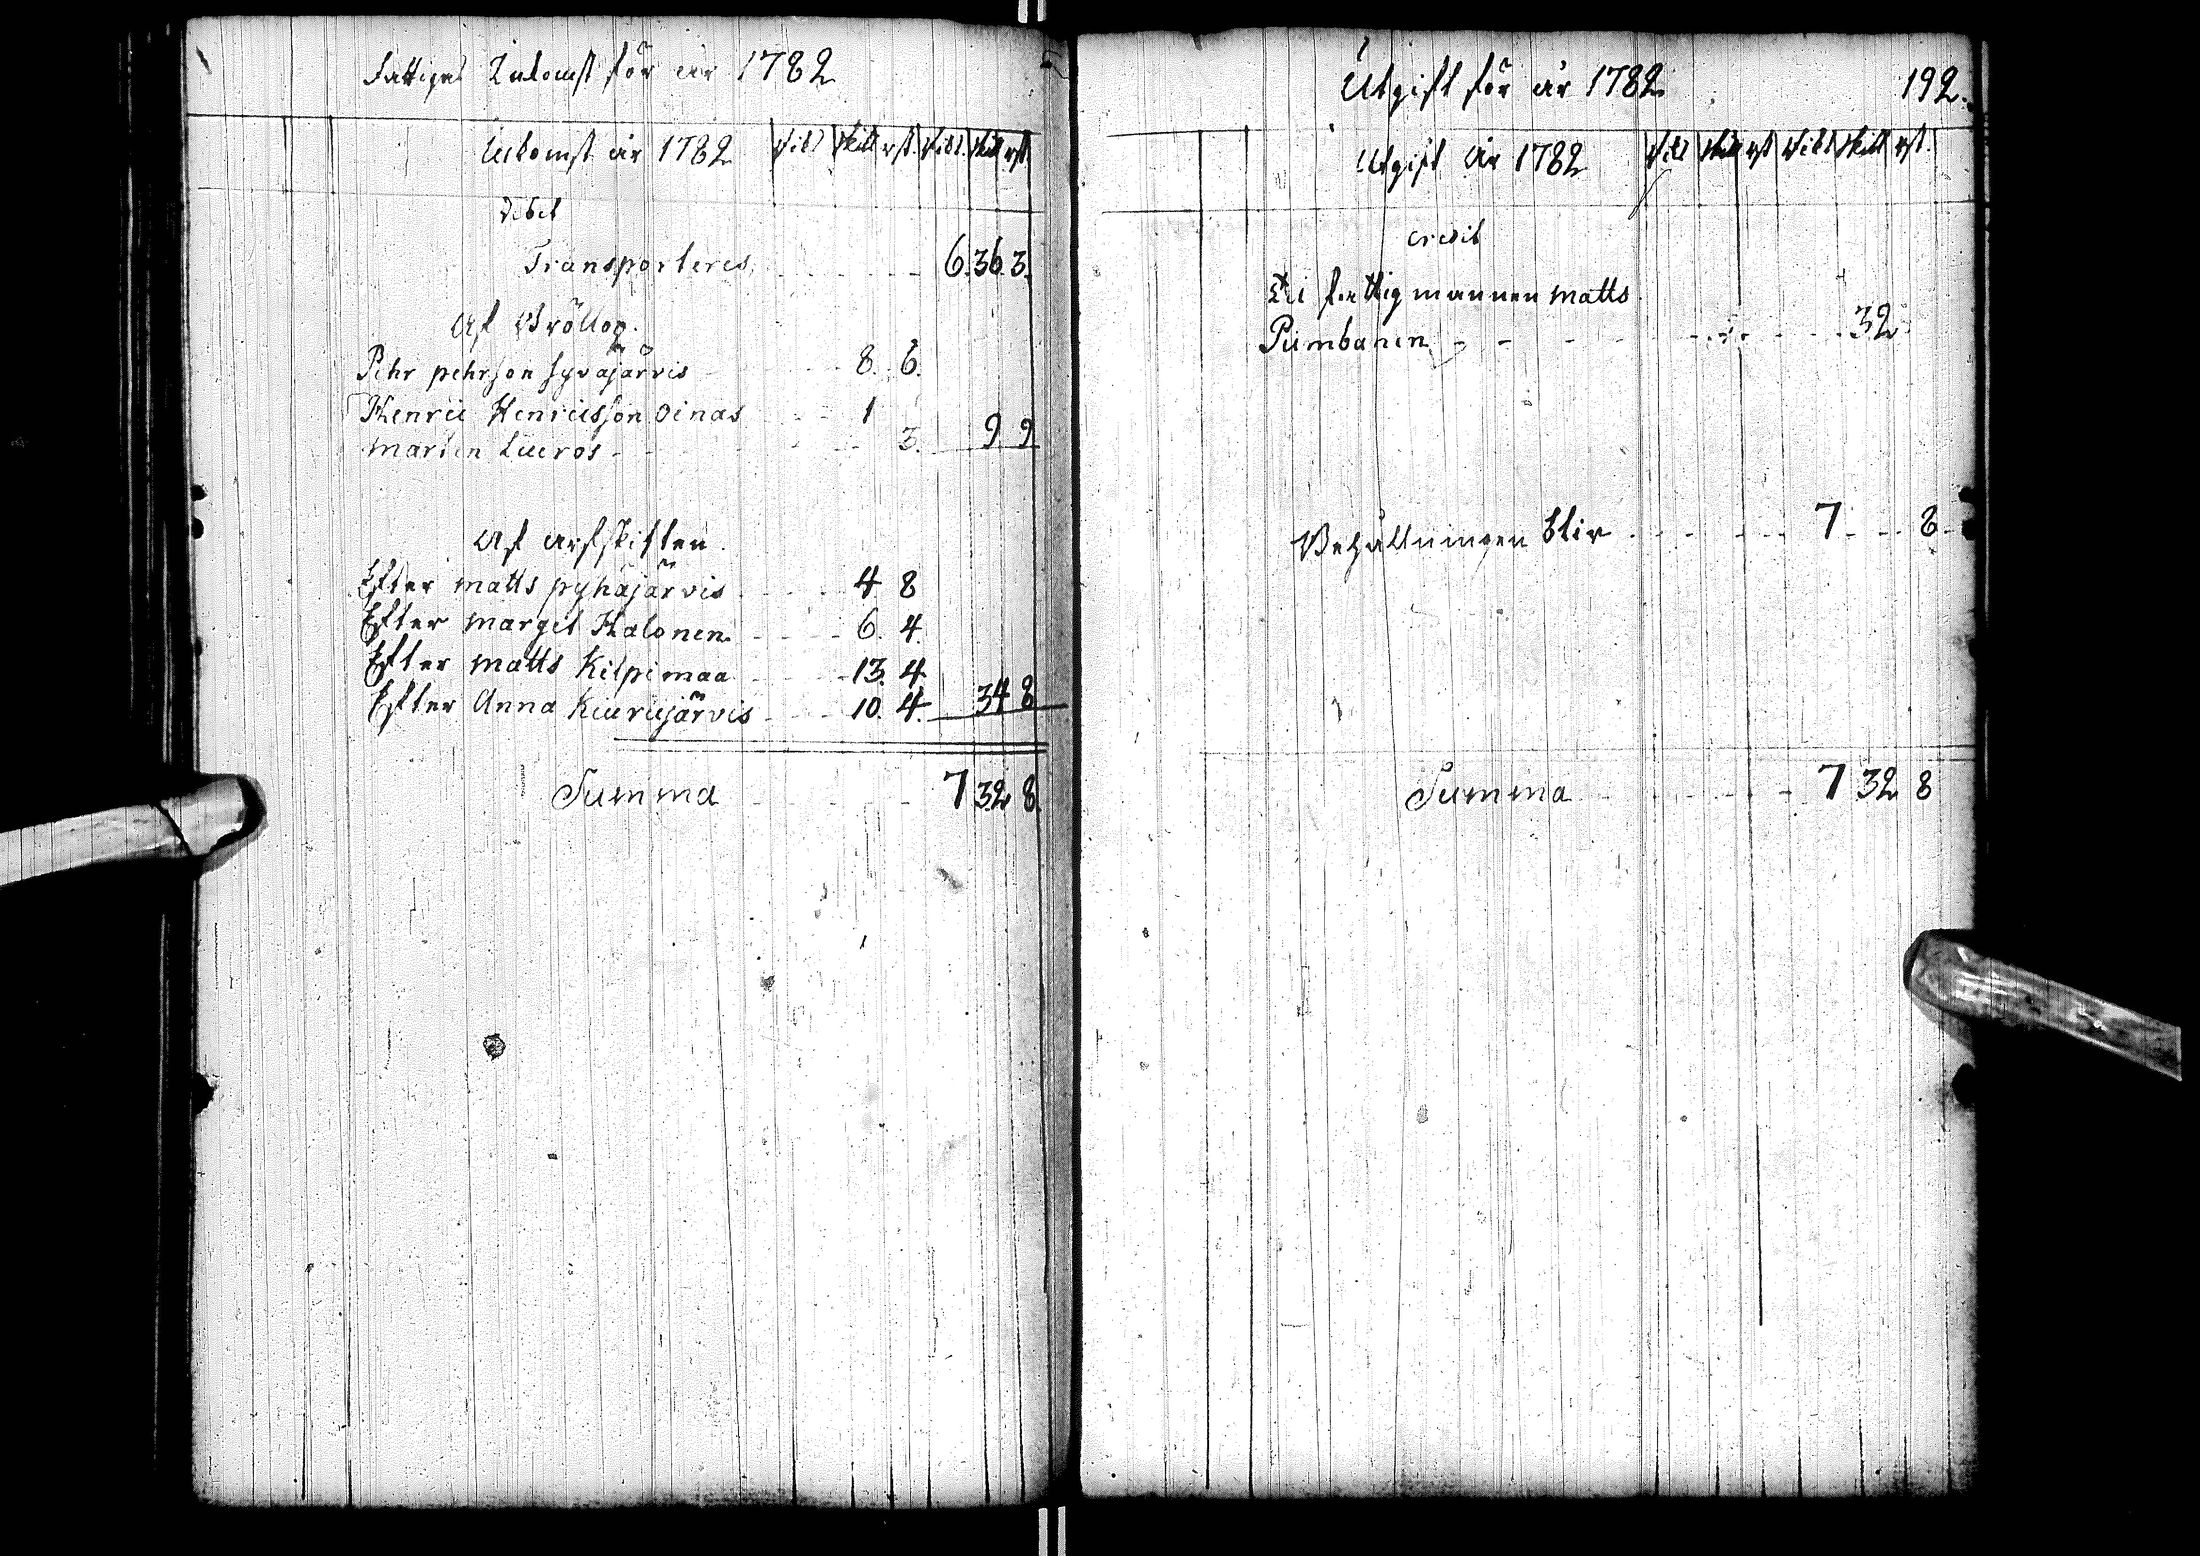 Fattiges Inkomst för år 1782
Inkomst år 1782 Rikd Skill rst. Rikd. Skill rst
Debet
Transporteres 6. 36 3.
Af Bröllop.
Pehr pehrson syväjärvis 8. 6.
Henric Henricsson Oinas 1
Marten Lueros 3. 9 9
Af arfskiften.
Efter matts pyhäjärvis 4 8
Efter Marget Halonen 6. 4.
Efter matts Kilpimaa 13. 4.
Efter Anna Kiurujärvis 10. 4. 34 8
Summa 7 32 8
Utgift för år 1782 192.
Utgift År 1782 Rikd Skill rst Rikd Skill rst.
Credit
Til fattig mannen matts
Pumbanen 32
Behållningen blir 7 8
Summa 7 32 8